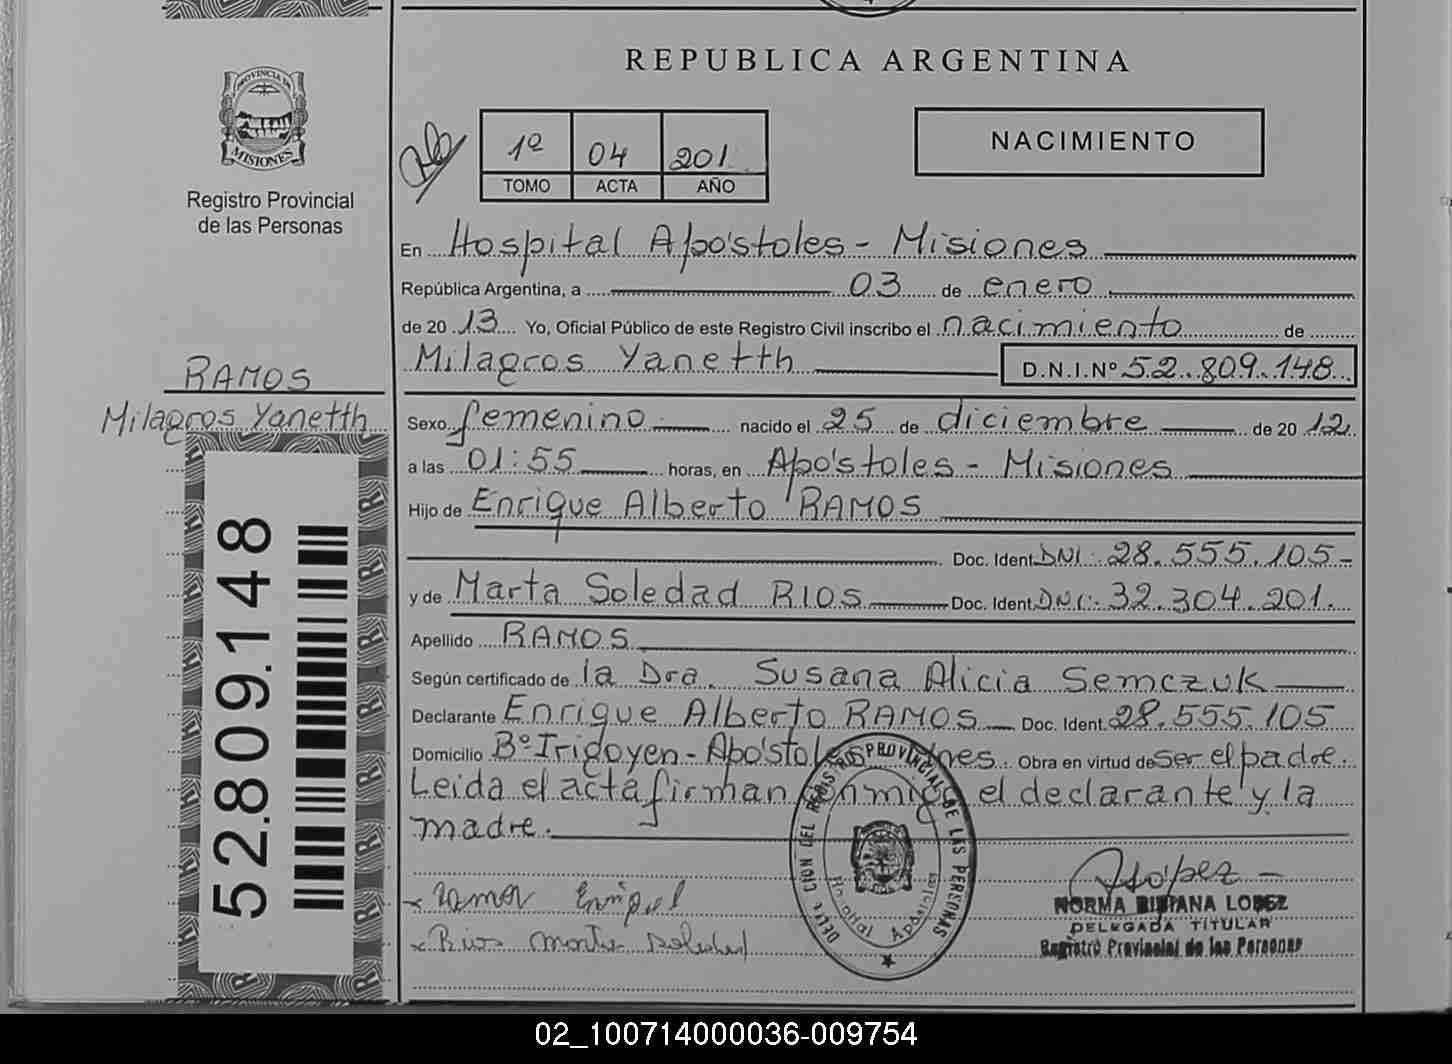 REPUBLICA ARGENTINA
PROVINCIA DE
MISIONES
Registro Provincial
de las Personas
1º 04 201
TOMO ACTA AÑO
NACIMIENTO
En Hospital Apóstoles - Misiones
República Argentina, a 03 de enero
de 2013 Yo, Oficial Público de este Registro Civil inscribo el nacimiento de
Milagros Yanetth D.N.I.Nº 52.809.148
RAMOS
Milagros Yanetth
Sexo femenino nacido el 25 de diciembre de 2012
a las 01:55 horas, en Apóstoles - Misiones
Hijo de Enrique Alberto RAMOS
Doc. Ident. DNI: 28.555.105-
y de Marta Soledad RIOS Doc. Ident. DNI: 32.304.201.
Apellido RAMOS
Según certificado de la Dra. Susana Alicia Semczuk
Declarante Enrique Alberto RAMOS Doc. Ident. 28.555.105
Domicilio Bº Irigoyen - Apóstoles Obra en virtud de ser el padre.
Leida el acta firman conmigo el declarante y la
madre.
52.809.148
Ramos Enrique
Rios Marta Soledad
REGISTRO PROVINCIAL DE LAS PERSONAS
Hospital Apóstoles
NORMA BIBIANA LOPEZ
DELEGADA TITULAR
Registro Provincial de las Personas
02_100714000036-009754